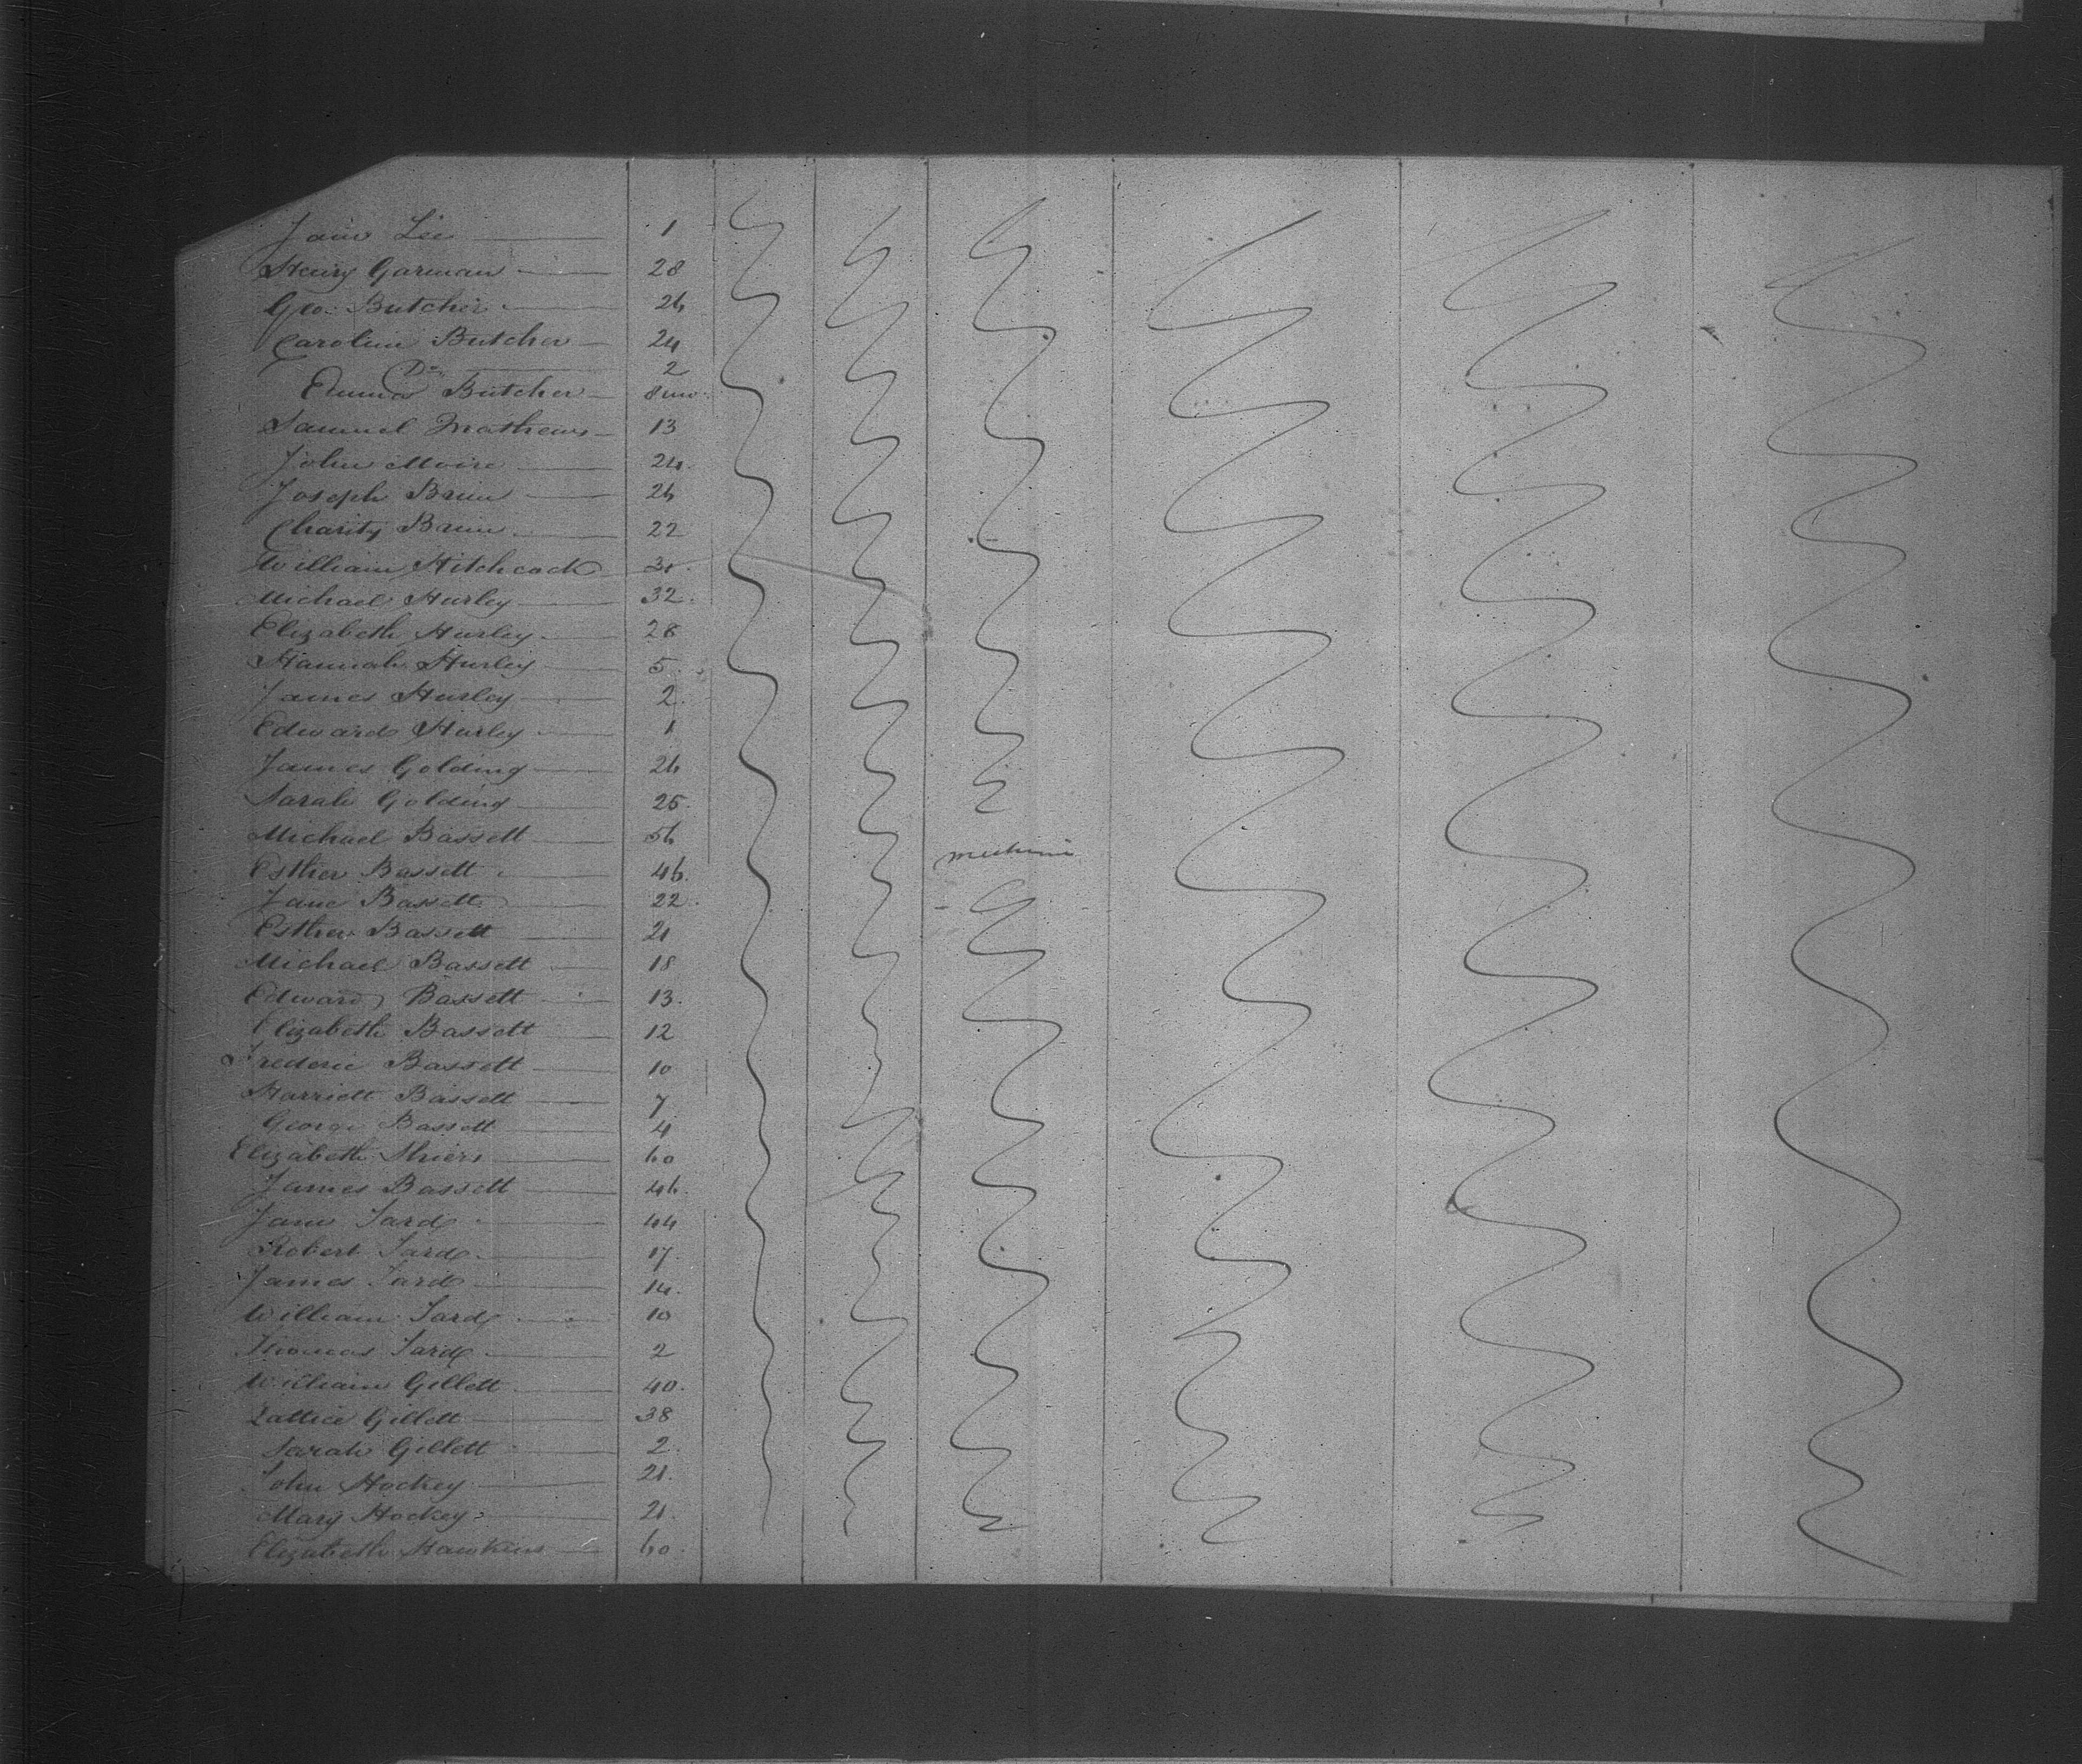 Jane Lee 1
Henry Garman 28
Geo. Butcher 26
Caroline Butcher 24
Do 2
Emma Butcher 8 mo.
Samuel Mathews 13
John Moire 24.
Joseph Brun 26
Charity Brun 22
William Hitchcock 31.
Michael Hurley 32.
Elizabeth Hurley 28
Hannah Hurley 5.
James Hurley 2.
Edward Hurley 1
James Golding 26
Sarah Golding 25.
Michael Bassett 56
Esther Bassett 46.
Jane Bassett 22.
Esther Bassett 21
Michael Bassett 18
Edward Bassett 13.
Elizabeth Bassett 12
Frederic Bassett 10
Harriett Bassett 7
George Bassett 4
Elizabeth 60
James Bassett 46.
Jane 44
Robert 17.
James 14.
William 10
Thomas 2
William Gillett 40.
Lattice Gillett 38
Sarah Gillett 2.
John Hockey 21.
Mary Hockey 21.
Elizabeth Hawkins 60